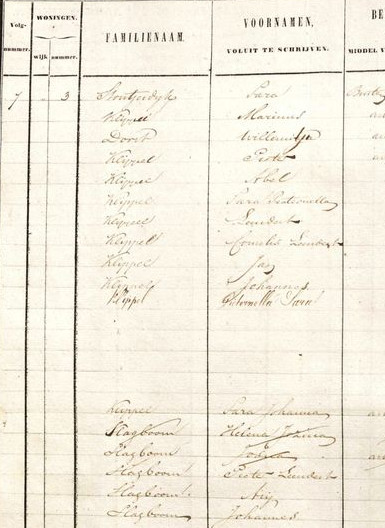 Volg-
nummer.
WONINGEN.
wijk
nummer.
FAMILIENAAM.
VOORNAMEN,
VOLUIT TE SCHRIJVEN.
BE
MIDDEL V
7 3 Houtzedijk Sara
Kleppel Marinus
Doorn Willemijn
Kleppel Pieter
Kleppel Abel
Kleppel Sara Pieternella
Kleppel Leendert
Kleppel Cornelis Leendert
Kleppel Jan
Kleppel Johannes
Kleppel Pieternella Sara
Kleppel Sara Johanna
Slagboom Helena Johanna
Slagboom
Slagboom Pieter Leendert
Slagboom Arij
Slagboom Johannes